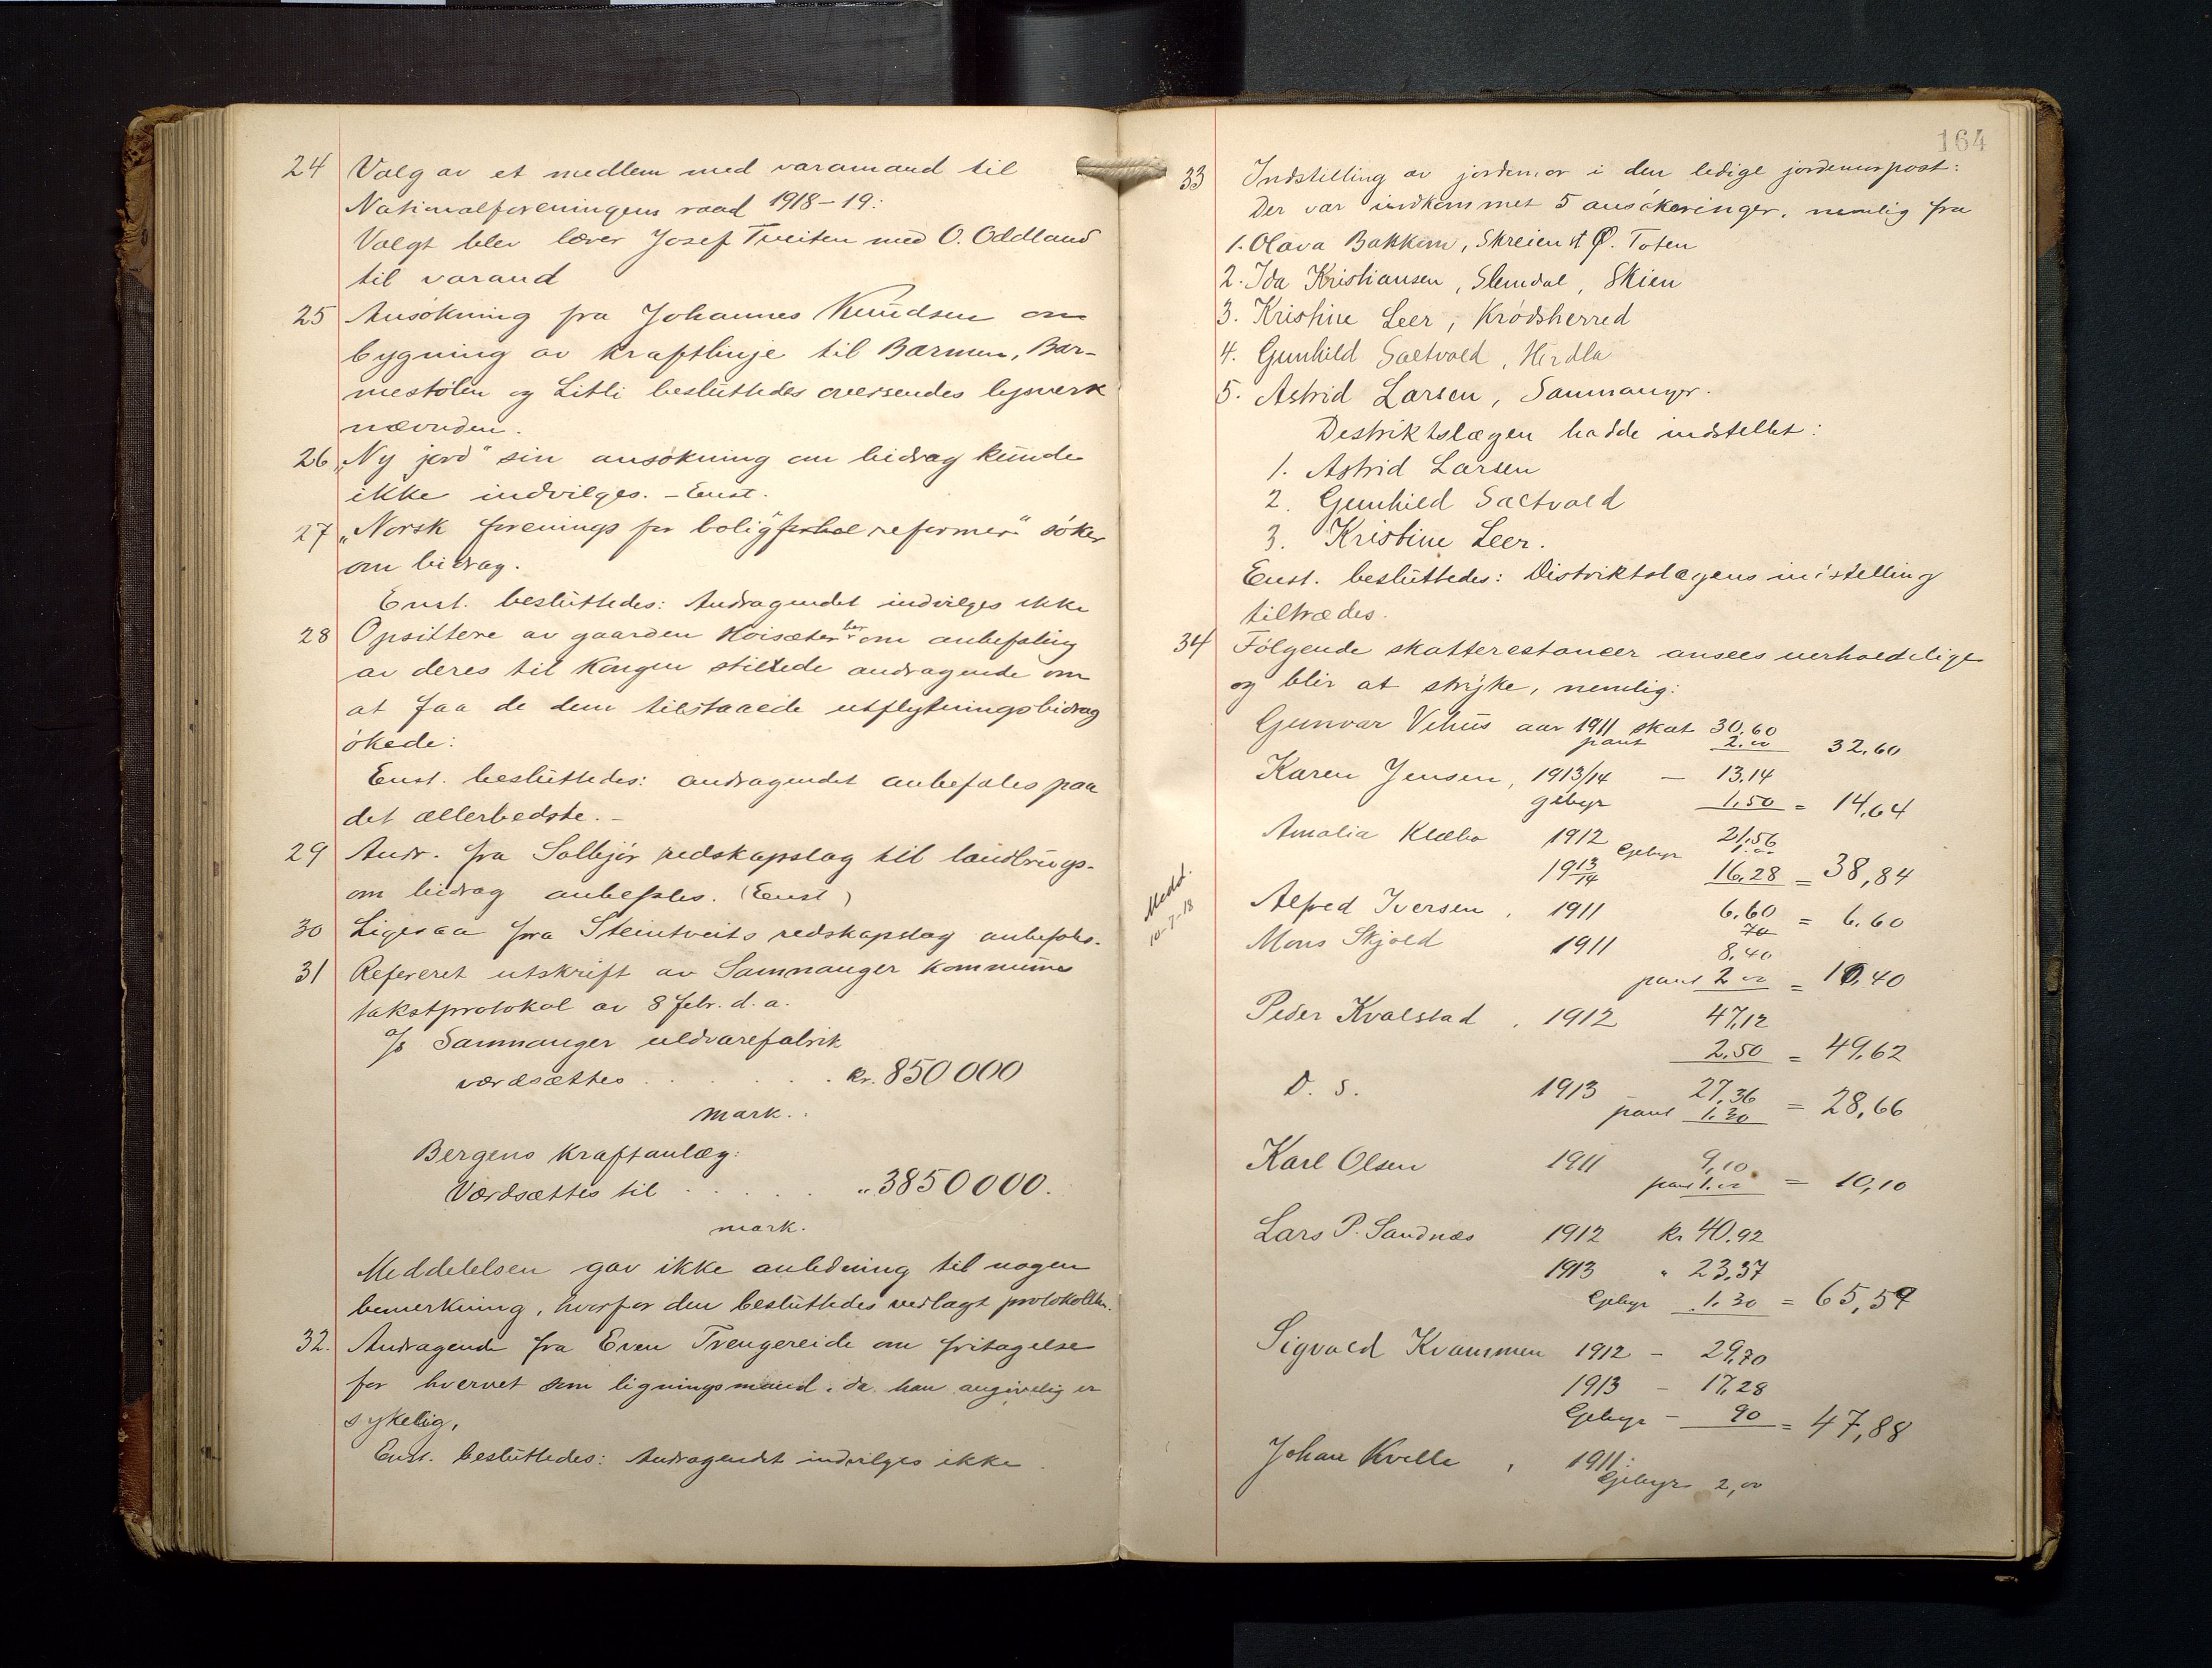 24 Valg av et medlem med varamand til
Nationalforeningens raad 1918–19:
Valgt blev lærer Josef Tveiten med O. Oddland
til varamd
25 Ansökning fra Johannes Knudsen om
bygning av kraftlinje til Barmen, Bar-
mestölen og Litli besluttedes oversendes lysverk
nævnden.
26 „Ny jord" sin ansökning om bidrag kunde
ikke indvilges. – Enst.
27 „Norsk forenings for boligreformer" söker
om bidrag.
Enst. besluttedes: Andragendet indvilges ikke
28 Opsittere av gaarden Höisæter ber om anbefaling
av deres til Kongen stillede andragende om
at faa de dem tilstaaede utflytningsbidrag
ökede:
Enst. besluttedes: andragendet anbefales paa
det allerbedste. –
29 Andr. fra Solbjör redskapslag til landbrugs-
om bidrag anbefales. (Enst)
30 Ligesaa fra Steintveits redskapslag anbefales.
31 Referert utskrift av Samnanger kommunes
takstprotokol av 8 febr. d. a.
a/s Samnanger uldvarefabrik
værdsættes . . . . . kr. 850 000
mark..
Bergens kraftanlæg:
Værdsættes til . . . . . „ 3850000.
mark.
Meddelelsen gav ikke anledning til nogen
bemerkning, hvorfor den besluttedes vedlagt protokollen.
32. Andragende fra Even Trengereide om fritagelse
for hvervet som ligningsmand, da han angivelig er
sykelig,
Enst. besluttedes: Andragendet indvilges ikke.
164
33 Indstilling av jordemor i den ledige jordemorpost:
Der var indkommet 5 ansökninger, nemlig fra
1. Olava Bakken, Skreien st Ø. Toten
2. Ida Kristiansen, Slemdal, Skien
3. Kristine Leer, Krödsherred
4. Gunhild Saltvold, Herdla
5. Astrid Larsen, Samnanger.
Destriktslægen hadde indstillet:
1. Astrid Larsen
2. Gunhild Saltvold
3. Kristine Leer.
Enst. besluttedes: Distriktslægens indstelling
tiltrædes.
34 Fölgende skatterestancer ansees uerholdelige
og blir at stryke, nemlig:
Gunvar Vehus aar 1911 skat 30,60
pant 2.00 32.60
Karen Jensen, 1913/14 – 13.14
gebyr 1,50 = 14,64
Amalia Klæbo 1912 21,56
Gebyr 1.00
1913/14 16,28 = 38,84
Medd.
10-7-18
Alfred Iversen, 1911 6,60 = 6,60
70
Mons Skjold 1911 8,40
pant 2 00 = 10,40
Peder Kvalstad, 1912 47,12
2.50 = 49,62
D. S. 1913 27,36
pant 1.30 = 28,66
Karl Olsen 1911 9,10
pant 1.00 = 10,10
Lars P. Sandnæs 1912 kr 40.92
1913 „ 23,37
Gebyr 1.30 = 65,59
Sigvald Kvammen 1912 – 29,70
1913 – 17,28
Gebyr – 90 = 47,88
Johan Kvelle, 1911:
Gebyr 2,00